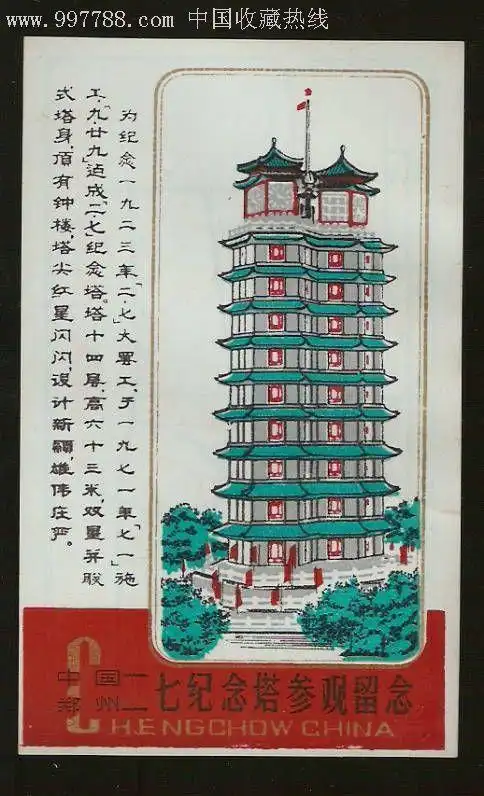 www.997788.com 中国收藏热线
为纪念一九二三年「二·七」大罢工,于一九七一年「七一」施
工,「九·廿九」迠成「二·七」纪念塔。塔十四层,高六十三米,双星并联
式塔身,顶有钟楼,塔尖红星闪闪,设计新颖,雄伟庄严。
中国
郑州二七纪念塔参观留念
CHENGCHOW CHINA